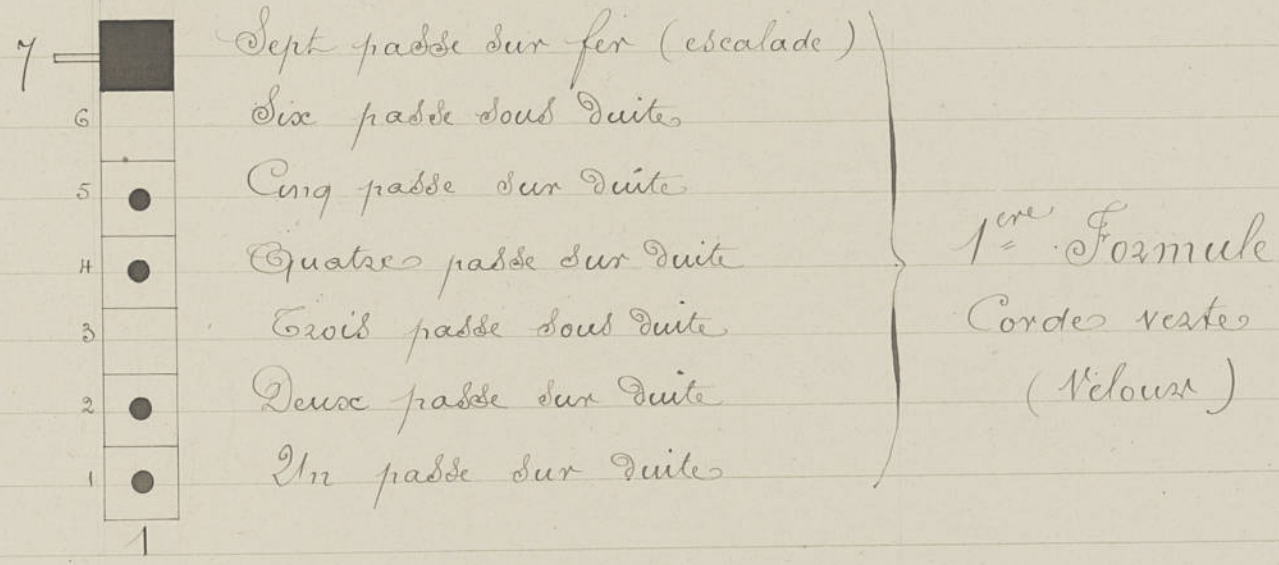 7 Sept passe sur fer (escalade)
6 Six passe sous duite
5 Cinq passe sur duite
4 Quatre passe sur duite
3 Trois passe sous duite
2 Deux passe sur duite
1 Un passe sur duite
1
1ère Formule
Corde verte
(Vélour)